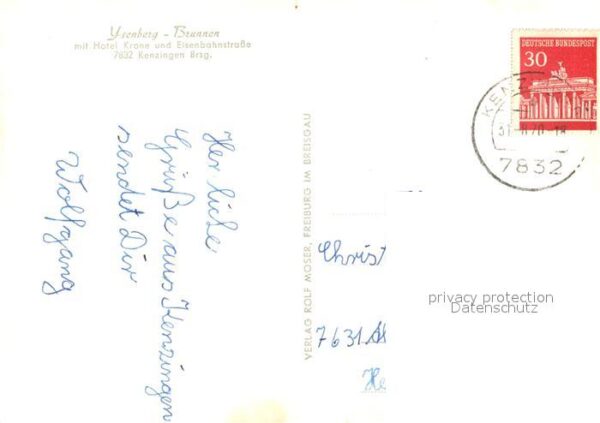 Ysenberg - Brunnen
mit Hotel Krone und Eisenbahnstraße
7832 Kenzingen Brsg.
Herzliche
Grüße aus Kenzingen
sendet Dir
Wolfgang
VERLAG ROLF MOSER, FREIBURG IM BREISGAU
DEUTSCHE BUNDESPOST
30
KENZ
7832
Christ
7631
He
privacy protection
Datenschutz